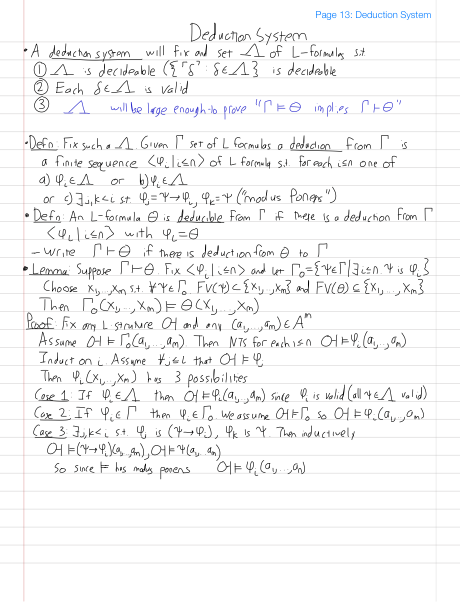 Page 13: Deduction System
Deduction System
• A deduction system will fix and set Λ of L-formulas s.t
① Λ is decideable ({⌜δ⌝ : δ∈Λ} is decideable
② Each δ∈Λ is valid
③ Λ will be large enough to prove "Γ⊨Θ implies Γ⊢Θ"
• Defn: Fix such a Λ. Given Γ set of L formulas a deduction from Γ is
a finite sequence <φ_i | i≤n> of L formula s.t. for each i≤n one of
a) φ_i∈Λ or b) φ_i∈Λ
or c) ∃j,k<i s.t. φ_j = Ψ→φ_i, φ_k = Ψ ("modus Ponens")
• Defn: An L-formula Θ is deducible from Γ if there is a deduction from Γ
<φ_i | i≤n> with φ_i = Θ
- Write Γ⊢Θ if there is deduction from Θ to Γ
• Lemma: Suppose Γ⊢Θ. Fix <φ_i | i≤n> and let Γ₀ = {Ψ∈Γ | ∃i≤n. Ψ is φ_i}
Choose x₁,...,x_m s.t. ∀Ψ∈Γ₀ FV(Ψ)⊆{x₁,...,x_m} and FV(Θ)⊆{x₁,...,x_m}
Then Γ₀(x₁,...,x_m)⊨Θ(x₁,...,x_m)
Proof: Fix any L-structure 𝔄 and any (a₁,...,a_m)∈A^m
Assume 𝔄⊨Γ₀(a₁,...,a_m). Then NTS for each i≤n 𝔄⊨φ_i(a₁,...,a_m)
Induct on i. Assume ∀j≤i that 𝔄⊨φ_j
Then φ_i(x₁,...,x_m) has 3 possibilites
Case 1: If φ_i∈Λ then 𝔄⊨φ_i(a₁,...,a_m) since φ_i is valid (all Ψ∈Λ valid)
Case 2: If φ_i∈Γ then φ_i∈Γ₀. We assume 𝔄⊨Γ₀ so 𝔄⊨φ_i(a₁,...,a_m)
Case 3: ∃j,k<i s.t. φ_j is (Ψ→φ_i), φ_k is Ψ. Then inductively
𝔄⊨(Ψ→φ_i)(a₁,...,a_m), 𝔄⊨Ψ(a₁,...,a_m)
So since ⊨ has modus ponens 𝔄⊨φ_i(a₁,...,a_m)